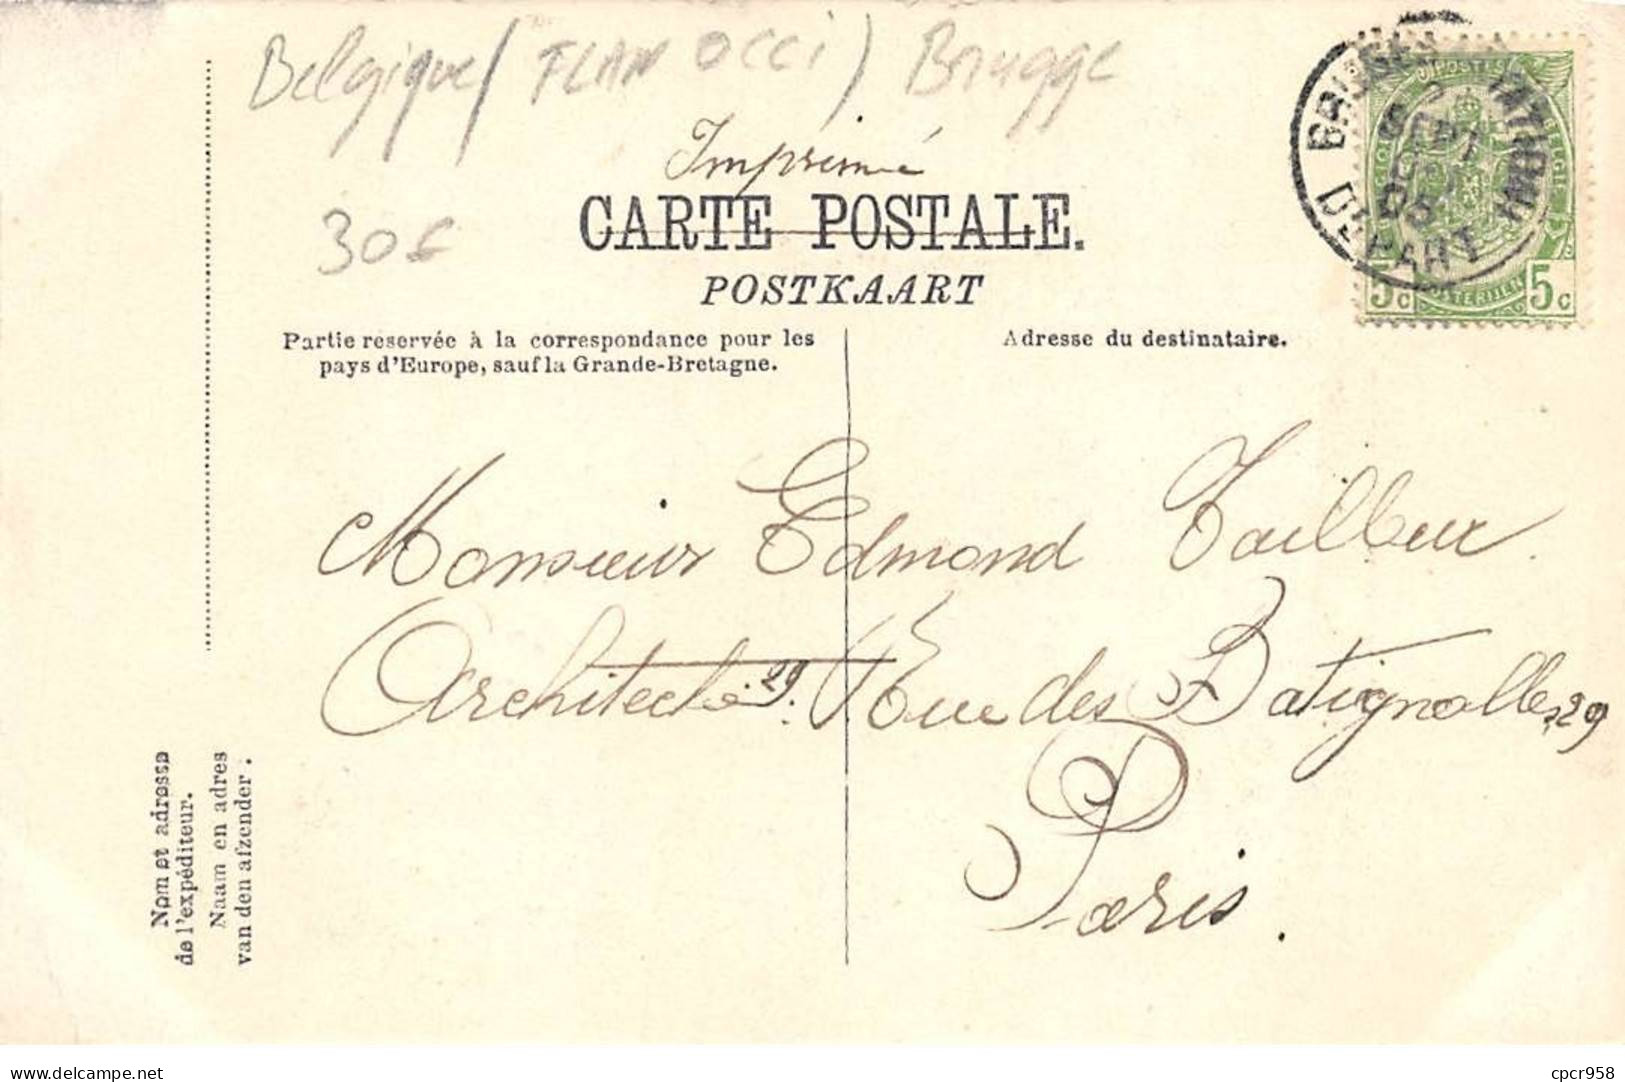 Belgique (FLAN OCCI) Brugge
Imprimé
30€
CARTE POSTALE.
POSTKAART
Partie reservée à la correspondance pour les
pays d'Europe, sauf la Grande-Bretagne.
Adresse du destinataire.
POSTES
BELGIQUE
BELGIE
POSTERIJEN
5c 5c
SEPT
05
DEPART
Monsieur Edmond Tailleur.
Architecte 29. Rue des Batignolles, 29
Paris.
Nom et adresse
de l'expéditeur.
Naam en adres
van den afzender.
www.delcampe.net
cpcr958